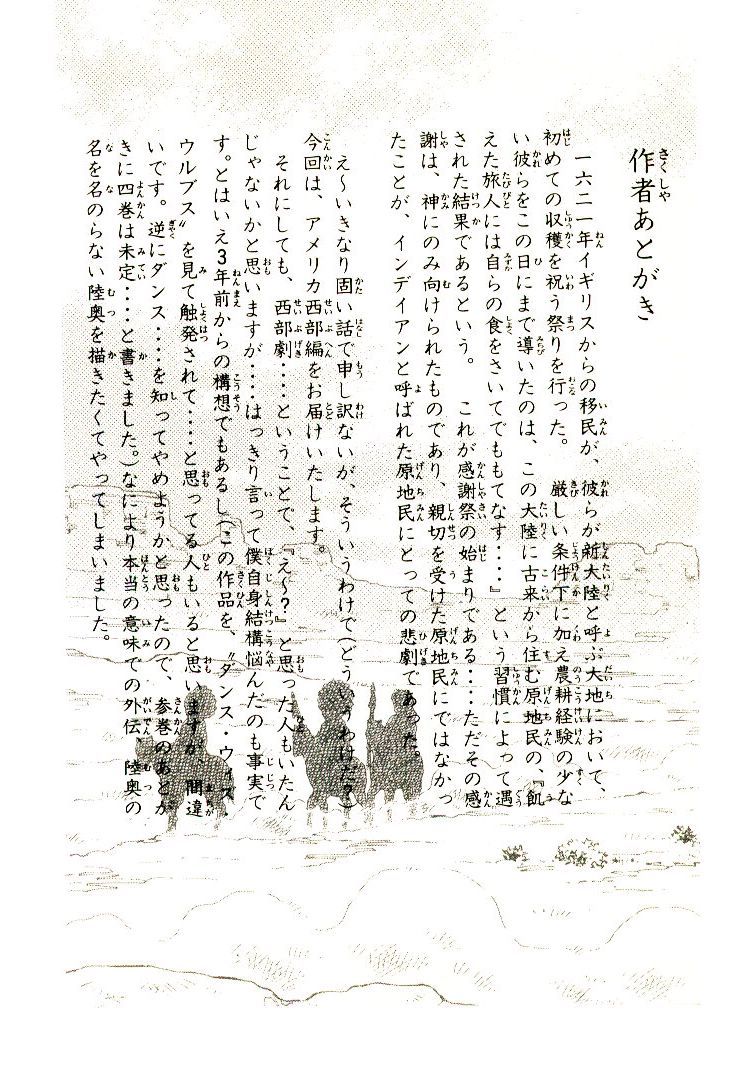 作者あとがき
一六二一年イギリスからの移民が、彼らが新大陸と呼ぶ大地において、
初めての収穫を祝う祭りを行った。　厳しい条件下に加え農耕経験の少な
い彼らをこの日にまで導いたのは、この大陸に古来から住む原地民の、『飢
えた旅人には自らの食をさいてでももてなす‥‥』という習慣によって遇
された結果であるという。　これが感謝祭の始まりである‥‥ただその感
謝は、神にのみ向けられたものであり、親切を受けた原地民にではなかっ
たことが、インデイアンと呼ばれた原地民にとっての悲劇であった。
え〜いきなり固い話で申し訳ないが、そういうわけで（どういうわけだ？）
今回は、アメリカ西部編をお届けいたします。
それにしても、西部劇‥‥ということで、『え〜？』と思った人もいたん
じゃないかと思いますが‥‥はっきり言って僕自身結構悩んだのも事実で
す。とはいえ3年前からの構想でもあるし（この作品を、〝ダンス・ウィズ・
ウルブス〟を見て触発されて‥‥と思ってる人もいると思いますが、間違
いです。逆にダンス‥‥を知ってやめようかと思ったので、参巻のあとが
きに四巻は未定‥‥と書きました。）なにより本当の意味での外伝、陸奥の
名を名のらない陸奥を描きたくてやってしまいました。